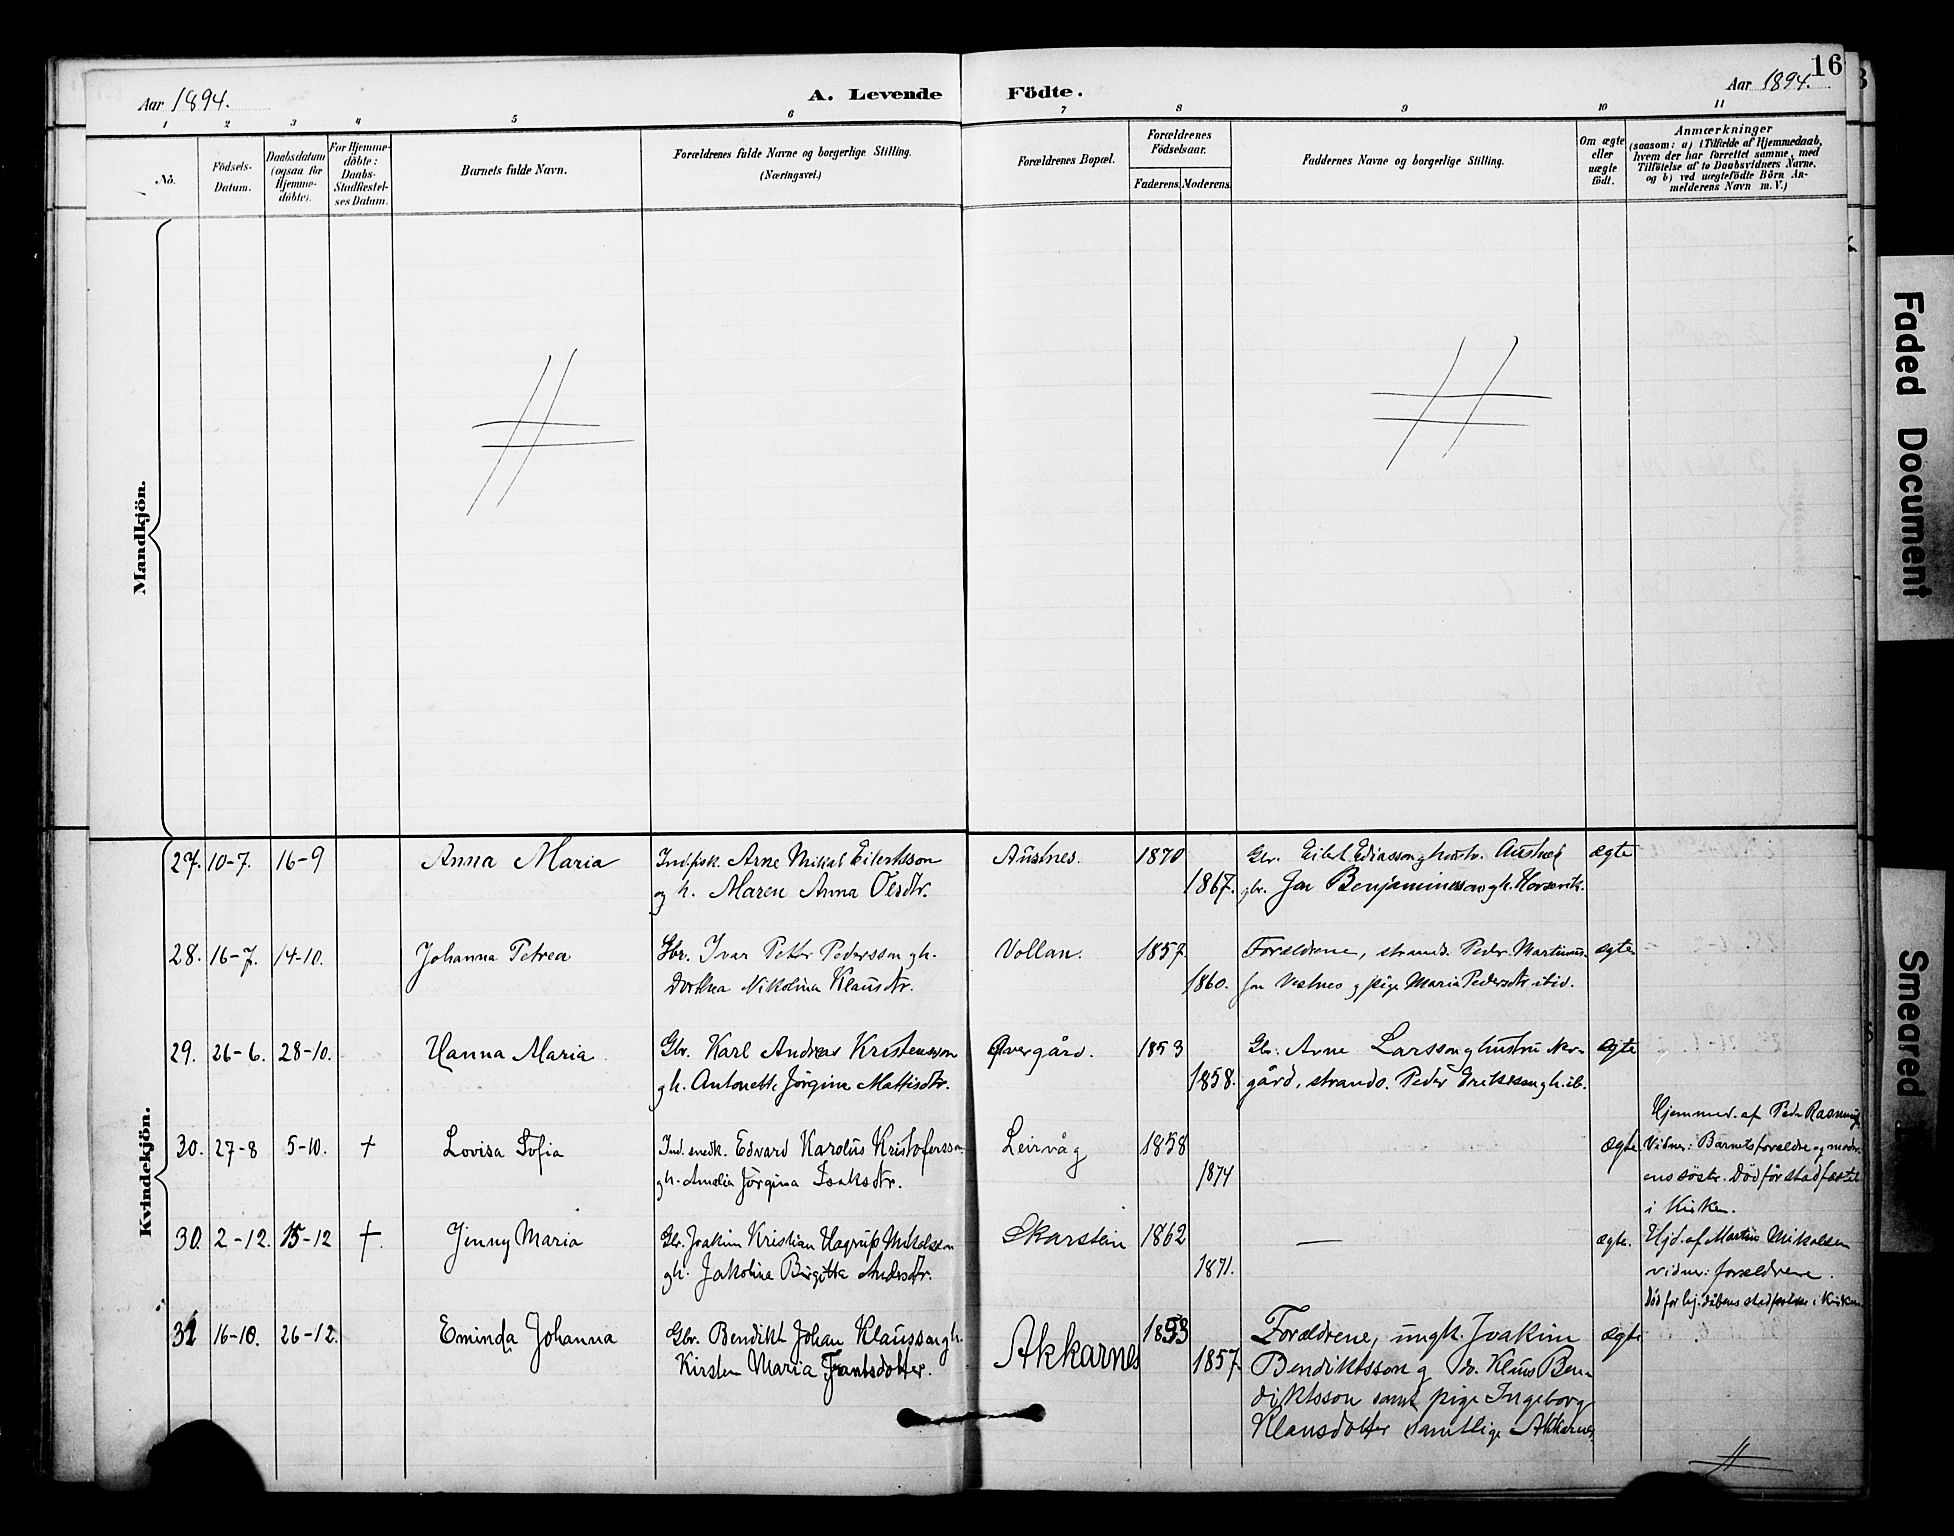 Aar 1894.
A. Levende Födte.
Aar 1894.
16
1 2 3 4 5 6 7 8 9 10 11
No.
Födsels-
Datum.
Daabsdatum
(ogsaa for
Hjemme-
döbte).
For Hjemme-
döbte:
Daabs-
Stadfæstel-
ses Datum.
Barnets fulde Navn.
Forældrenes fulde Navne og borgerlige Stilling.
(Næringsvei.)
Forældrenes Bopæl.
Forældrenes
Födselsaar.
Faderens. Moderens.
Faddernes Navne og borgerlige Stilling.
Om ægte
eller
uægte
födt.
Anmærkninger
(saasom: a) i Tilfælde af Hjemmedaab,
hvem der har forrettet samme, med
Tilföielse af to Daabsvidners Navne,
og b) ved uægtefödte Börn An-
melderens Navn m. V.)
Mandkjön.
Kvindekjön.
27. 10-7. 16-9 Anna Maria
Ind.fisk. Arne Mikal Eilertsson
og h. Maren Anna Olsdtr.
Austnes. 1870
1867.
Gbr. Eilert Ediasson g hustr. Austnes
gbr. Jon Benjaminsson g h. Horsevik.
ægte
28. 16-7. 14-10. Johanna Petrea
Gbr. Ivar Petter Pedersson g h.
Dorthea Nikolina Klausdtr.
Vollan. 1857.
1860.
Forældrene, strands. Peder Martinus-
son Vestnes g pige Maria Pedersdtr ibid.
ægte
29. 26-6. 28-10. Hanna Maria
Gbr. Karl Andreas Kristensson
g h. Antonette Jörgine Mattisdtr.
Øvergård. 1853
1858.
Gbr. Arne Larsson g hustru Ner-
gård, strands. Peder Erikkson g h. ib.
ægte
30. 27-8 5-10. † Lovisa Sofia
Ind. smedk. Edvard Karolus Kristofersson
g h. Amalia Jörgina Isaksdtr.
Leirvåg 1858
1874
ægte
Hjemmed. af Peder Rasmus
Vidner: Barnets forældre og modr-
ens söstr. Död för stadfæstet
i Kirken.
30. 2-12. 15-12 †. Jenny Maria
Gbr. Joakim Kristian Hagrup Mikalsson
g h. Jakolina Birgitte Andersdtr.
Skarstein 1862
1871.
—
ægte.
Hjd. af Martin Mikalsen
vidner: forældrene.
Död for hj.dåbens stadfæstelse i Kirken
31 16-10. 26-12. Eminda Johanna
Gbr. Bendikt Johan Klausson g h.
Kirsten Maria Frantsdotter.
Akkarnes 1853
1857.
Forældrene, ungk. Joakim
Bendiktsson g do. Klaus Ben-
diktsson samt pige Ingeborg
Klausdotter samtlige Akkarnes
ægte
Faded Document
Smeared